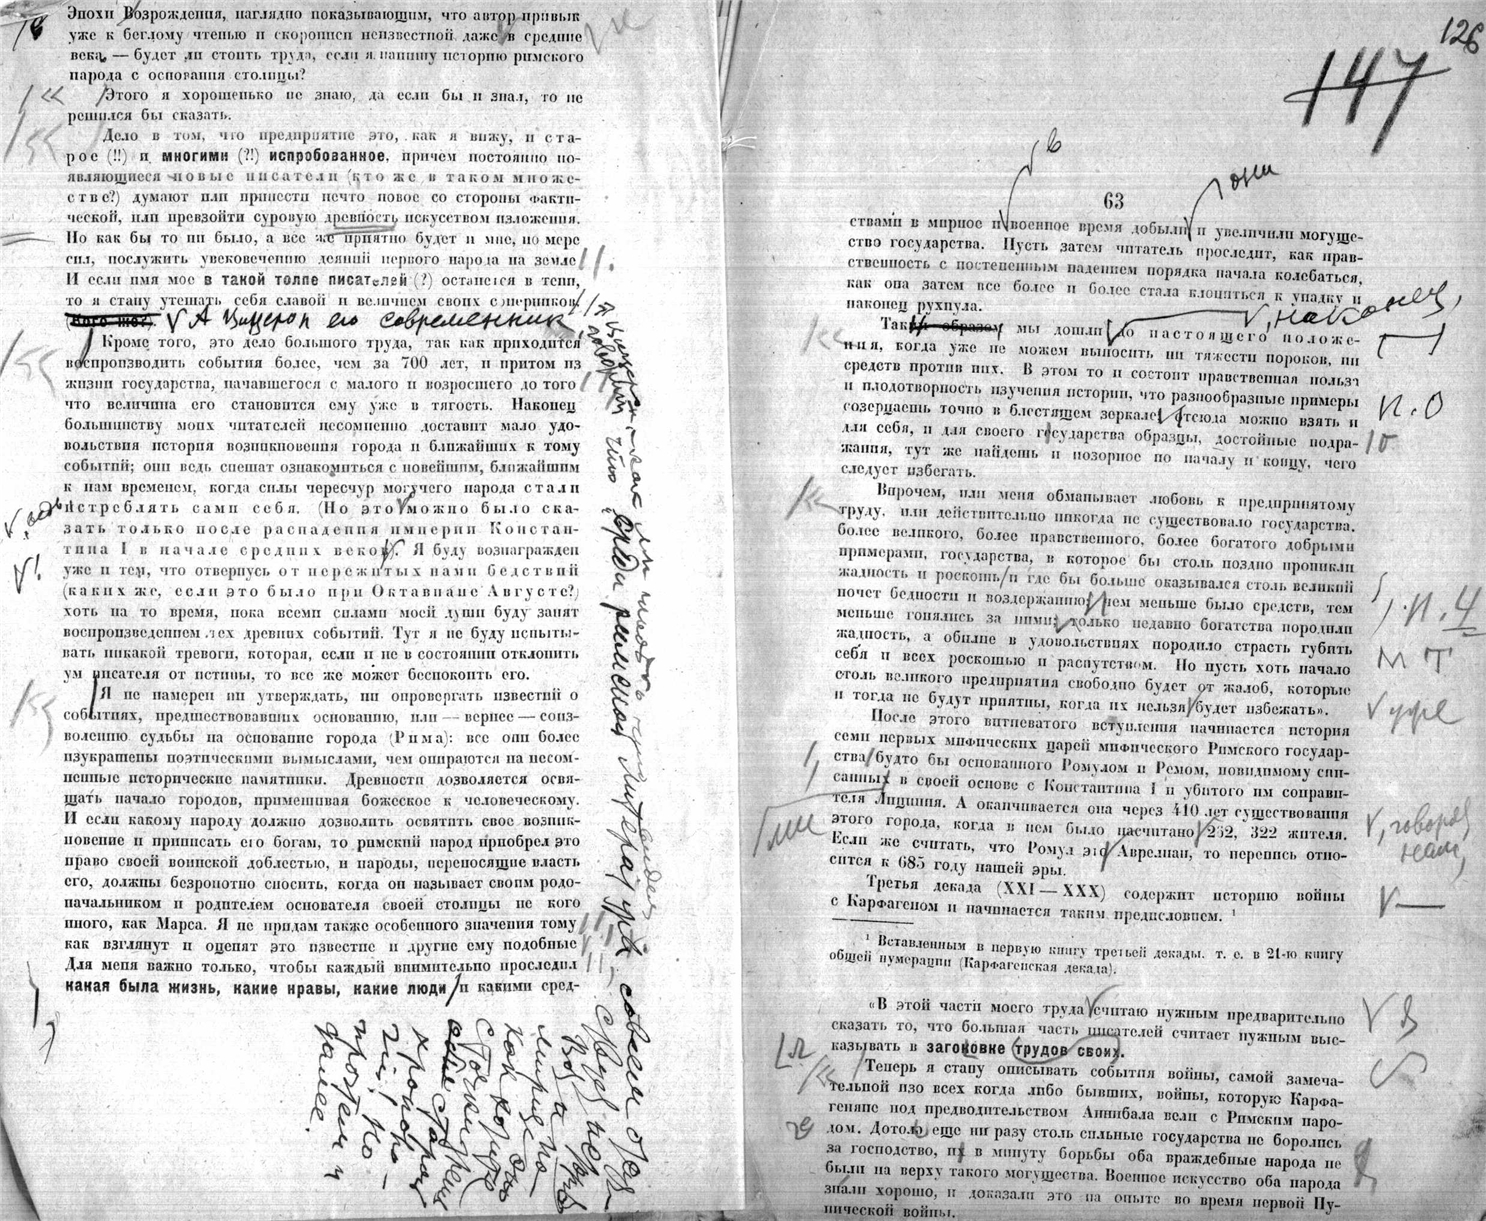 Эпохи Возрождения, наглядно показывающим, что автор привык
уже к беглому чтенью и скорописи неизвестной даже в средние
века, — будет ли стоить труда, если я напишу историю римского
народа с основания столицы?
Этого я хорошенько не знаю, да если бы и знал, то не
решился бы сказать.
Дело в том, что предприятие это, как я вижу, и ста-
рое (!!) и многими (?!) испробованное, причем постоянно по-
являющиеся новые писатели (кто же в таком множе-
стве?) думают или принести нечто новое со стороны факти-
ческой, или превзойти суровую древность искусством изложения.
Но как бы то ни было, а все же приятно будет и мне, по мере
сил, послужить увековечению деяний первого народа на земле
И если имя мое в такой толпе писателей (?) останется в тени,
то я стану утешать себя славой и величием своих соперников
(кого же?). А Цицерон его современник
Кроме того, это дело большого труда, так как приходится
воспроизводить события более, чем за 700 лет, и притом из
жизни государства, начавшегося с малого и возросшего до того
что величина его становится ему уже в тягость. Наконец
большинству моих читателей несомненно доставит мало удо-
вольствия история возникновения города и ближайших к тому
событий; они ведь спешат ознакомиться с новейшим, ближайшим
к нам временем, когда силы чересчур могучего народа стали
истреблять сами себя. (Но это можно было ска-
зать только после распадения империи Констан-
тина I в начале средних веков). Я буду вознагражден
уже и тем, что отвернусь от пережитых нами бедствий
(каких же, если это было при Октавиане Августе?)
хоть на то время, пока всеми силами моей души буду занят
воспроизведением тех древних событий. Тут я не буду испыты-
вать никакой тревоги, которая, если и не в состоянии отклонить
ум писателя от истины, то все же может беспокоить его.
Я не намерен ни утверждать, ни опровергать известий о
событиях, предшествовавших основанию, или — вернее — соиз-
волению судьбы на основание города (Рима): все они более
изукрашены поэтическими вымыслами, чем опираются на несом-
ненные исторические памятники. Древности дозволяется освя-
щать начало городов, примешивая божеское к человеческому.
И если какому народу должно дозволить освятить свое возник-
новение и приписать его богам, то римский народ приобрел это
право своей воинской доблестью, и народы, переносящие власть
его, должны безропотно сносить, когда он называет своим родо-
начальником и родителем основателя своей столицы не кого
иного, как Марса. Я не придам также особенного значения тому
как взглянут и оценят это известие и другие ему подобные
Для меня важно только, чтобы каждый внимательно проследил
какая была жизнь, какие нравы, какие люди и какими сред-
126
147
в
они
63
ствами в мирное и военное время добыли и увеличили могуще-
ство государства. Пусть затем читатель проследит, как нрав-
ственность с постепенным падением порядка начала колебаться,
как она затем все более и более стала клониться к упадку и
наконец рухнула.
наконец,
Таким образом мы дошли до настоящего положе-
ния, когда уже не можем выносить ни тяжести пороков, ни
средств против них. В этом то и состоит нравственная польза
и плодотворность изучения истории, что разнообразные примеры
созерцаешь точно в блестящем зеркале. Отсюда можно взять и
для себя, и для своего государства образцы, достойные подра-
жания, тут же найдешь и позорное по началу и концу, чего
следует избегать.
Впрочем, или меня обманывает любовь к предпринятому
труду, или действительно никогда не существовало государства,
более великого, более нравственного, более богатого добрыми
примерами, государства, в которое бы столь поздно проникли
жадность и роскошь и где бы больше оказывался столь великий
почет бедности и воздержанию; чем меньше было средств, тем
меньше гонялись за ними; только недавно богатства породили
жадность, а обилие в удовольствиях породило страсть губить
себя и всех роскошью и распутством. Но пусть хоть начало
столь великого предприятия свободно будет от жалоб, которые
и тогда не будут приятны, когда их нельзя будет избежать».
уже
После этого витиеватого вступления начинается история
семи первых мифических царей мифического Римского государ-
ства будто бы основанного Ромулом и Ремом, повидимому спи-
санных в своей основе с Константина I и убитого им соправи-
теля Лициния. А оканчивается она через 410 лет существования
этого города, когда в нем было насчитано 262, 322 жителя.
, говорят нам,
Если же считать, что Ромул это Аврелиан, то перепись отно-
сится к 685 году нашей эры.
Третья декада (XXI — XXX) содержит историю войны
с Карфагеном и начинается таким предисловием. ¹
¹ Вставленным в первую книгу третьей декады. т. е. в 21-ю книгу
общей нумерации (Карфагенская декада).
«В этой части моего труда считаю нужным предварительно
сказать то, что большая часть писателей считает нужным выс-
казывать в загоковке трудов своих.
Теперь я стану описывать события войны, самой замеча-
тельной изо всех когда либо бывших, войны, которую Карфа-
геняне под предводительством Аннибала вели с Римским наро-
дом. Дотоль еще ни разу столь сильные государства не боролись
за господство, их в минуту борьбы оба враждебные народа не
были на верху такого могущества. Военное искусство оба народа
знали хорошо, и доказали это на опыте во время первой Пу-
нической войны.